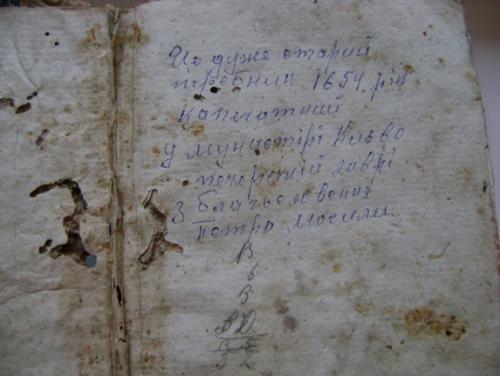 Цо дуже старий
требник 1654 рік
напечатний
у мунастірі Київо
печерській лаврі
З благословенія
петра Могили
В
6
3
ВД